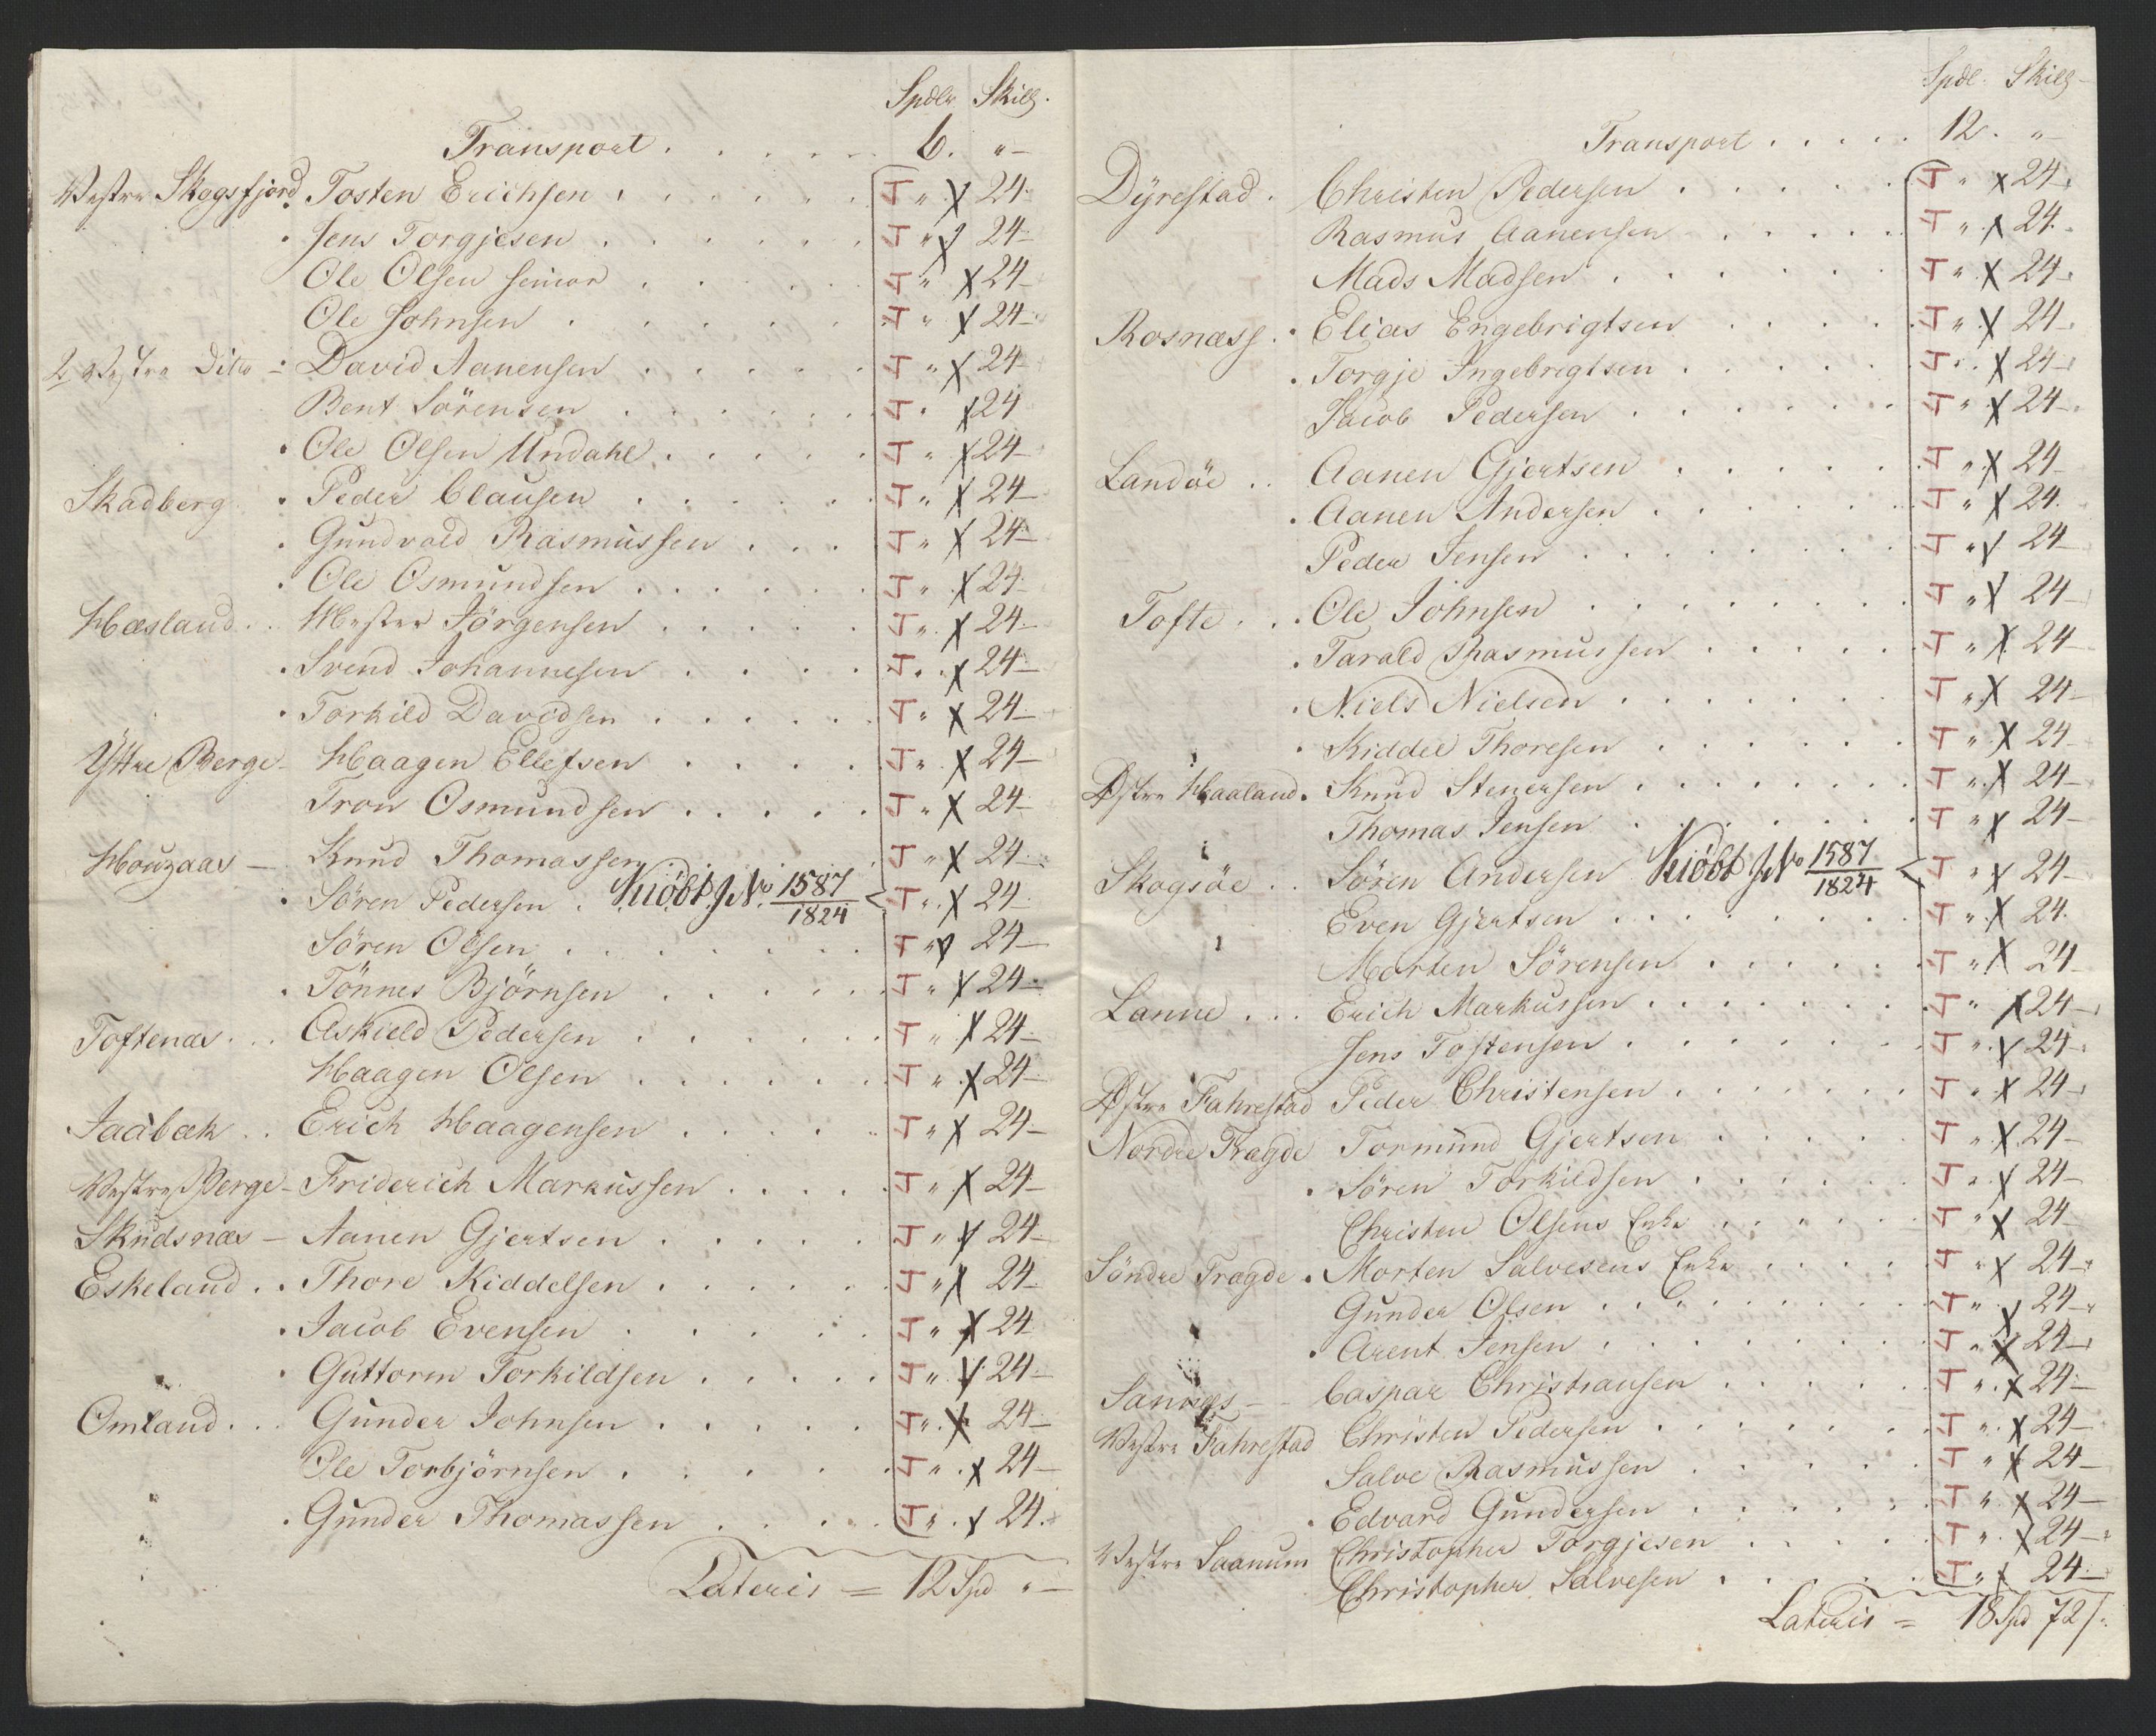 Spdlr. Skilg.
Transport . . . . . 6. "-
Vestre Skogsfjord. Tosten Erichsen . . . . . J " X 24-
Jens Torgjesen . . . . . J " X 24-
Ole Olsen senior . . . . . J " X 24-
Ole Johnsen . . . . . J " X 24-
2 Vestre Dito - David Aanensen . . . . . J " X 24-
Bent Sörensen . . . . . J " X 24
Ole Olsen Undahl . . . . . J " X 24-
Skadberg . Peder Clausen . . . . . J " X 24-
Gundvald Rasmussen . . . J " X 24-
Ole Osmundsen . . . . . J " X 24-
Hæsland . . Mester Jörgensen . . . . . J " X 24-
Svend Johannesen . . . . J " X 24-
Torkild Davidsen . . . . . J " X 24-
Ÿttre Berge - Haagen Ellefsen . . . . J " X 24-
Tron Osmundsen . . . . . J " X 24-
Houzaas - Knud Thomassen . . . . J " X 24-
Sören Pedersen . Kiöbt J. No 1587/1824 J " X 24-
Sören Olsen . . . . . . . J " X 24-
Tönnes Björnsen . . . . . J " X 24-
Toftenæs . . . Askield Pedersen . . . . . J " X 24-
Haagen Olsen . . . . . . J " X 24-
Jaabæk . . Erich Haagensen . . . . . J " X 24-
Vestre Berge - Friderich Markussen . . . . . J " X 24-
Skudsnæs - Aanen Gjertsen . . . . . J " X 24-
Eskeland . . Thore Kiddelsen . . . . . J " X 24-
Jacob Evensen . . . . . J " X 24
Guttorm Torkildsen . . . . . J " X 24-
Omland . . . Gunder Johnsen . . . . . J " X 24-
Ole Torbjörnsen . . . . . J " X 24-
Gunder Thomassen . . . . J " X 24.
Lateris = 12 Spd "-
Spdl. Skilg-
Transport . . . . . 12. "-
Dÿrestad . Christen Pedersen . . . . . J " X 24-
Rasmus Aanensen . . . . . J " X 24.
Mads Madsen . . . . . . J " X 24-
Rosnæss . . Elias Engebrigtsen . . . . . J " X 24-
Torgje Ingebrigtsen . . . . . J " X 24-
Jacob Pedersen . . . . . . J " X 24-
Landöe . . Aanen Gjertsen . . . . . J " X 24-
Aanen Andersen . . . . . . J " X 24.
Peder Jensen . . . . . . . J " X 24-
Tofte . . . Ole Johnsen . . . . . . . J " X 24-
Tarald Rasmussen . . . . . J " X 24-
Niels Nielsen . . . . . . J " X 24-
Kiddel Thoresen . . . . . . J " X 24-
Østre Haaland . Knud Stenersen . . . . . . J " X 24-
Thomas Jensen . . . . . . J " X 24-
Skogsöe . . Sören Andersen Kiöbt J No 1587/1824 J " X 24-
Even Gjertsen . . . . . . . J " X 24.
Morten Sörensen . . . . . J " X 24
Lanne . . . Erich Markussen . . . . . . J " X 24-
Jens Tostensen . . . . . . J " X 24-
Østre Fahrestad Peder Christensen . . . . . . J " X 24-
Nordre Tragde Tormund Gjertsen . . . . . J " X 24-
Sören Torkildsen . . . . . J " X 24-
Christen Olsens Enke . . . . . J " X 24
Söndre Tragde . Morten Salvesens Enke . . . . J " X 24-
Gunder Olsen . . . . . . . . J " X 24-
Arent Jensen . . . . . . . . J " X 24-
Sannæs - - Caspar Christiansen . . . . . J " X 24-
Vestre Fahrestad Christen Pedersen . . . . . . J " X 24-
Salve Rasmussen . . . . . J " X 24-
Edvard Gundersen . . . . . J " X 24-
Vestre Saanum Christopher Torgjesen . . . . J " X 24-
Christopher Salvesen . . . . J " X 24-
Lateris = 18 Spd 72 s.